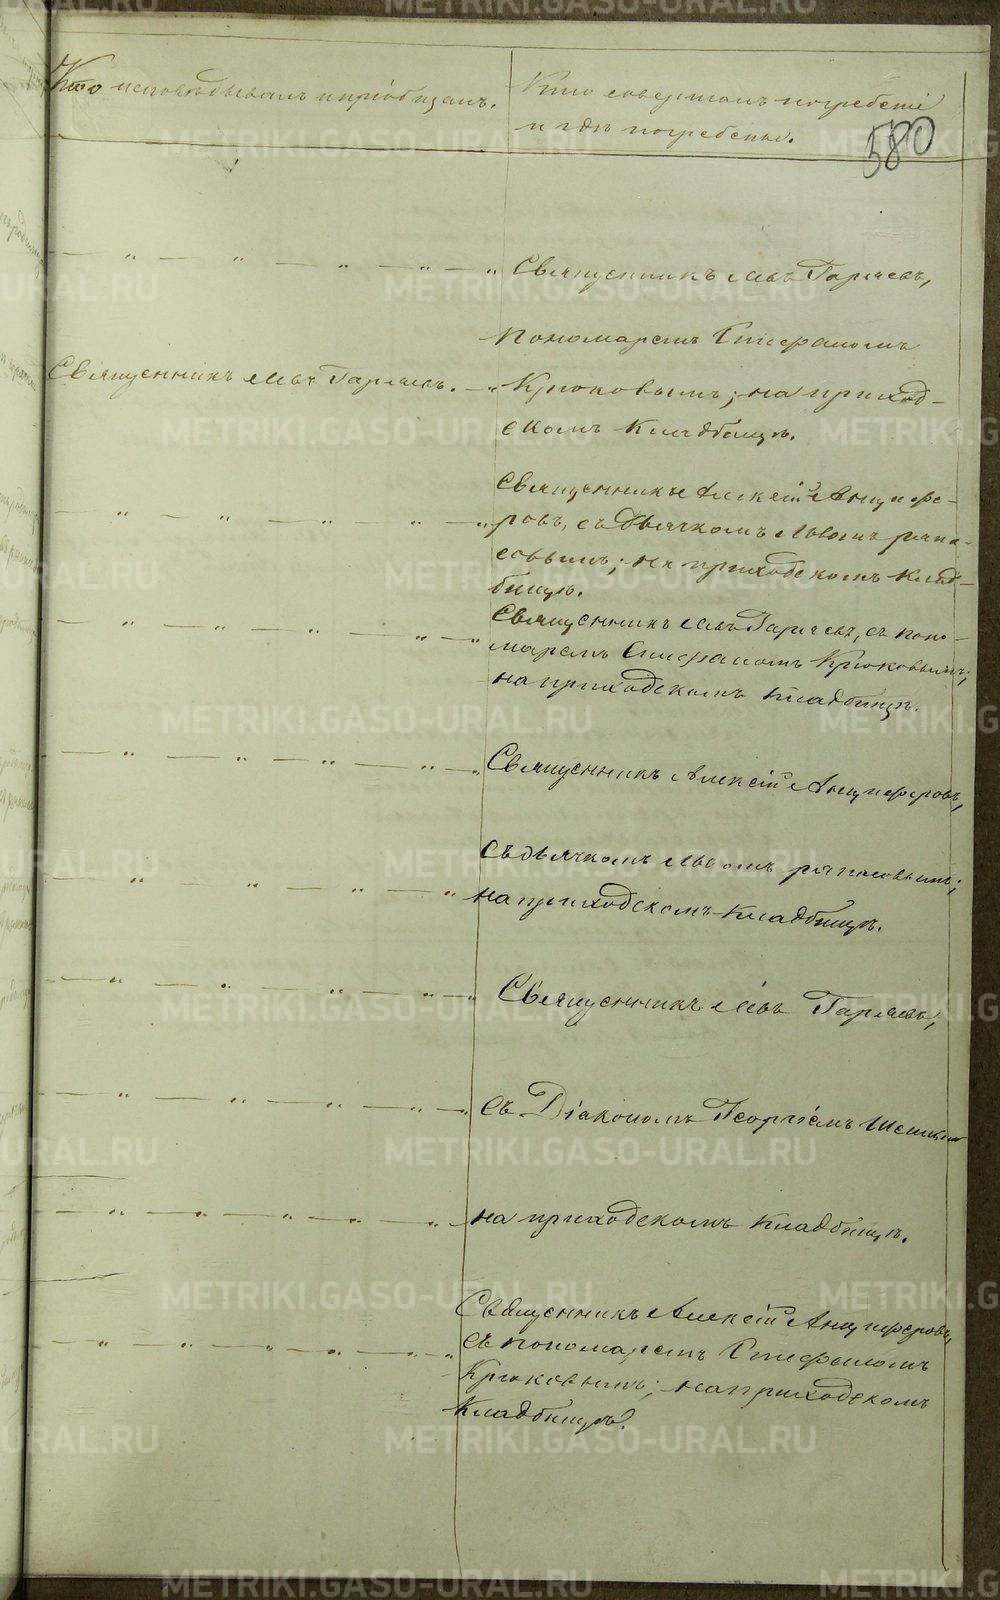 Кто исповѣдывалъ и пріобщалъ.
Кто совершалъ погребеніе
и гдѣ погребены.
580
Священникъ Левъ Гаряевъ,
Пономаремъ Стефаномъ
Священникъ Левъ Гаряевъ.
Крюковымъ; на приход-
скомъ кладбищѣ.
Священникъ Алексій Анциfе-
ровъ, съ дьячкомъ Львомъ
на приходскомъ клад-
бищѣ.
Священникъ Левъ Гаряевъ, съ поно-
маремъ Стефаномъ Крюковымъ;
на приходскомъ кладбищѣ.
Священникъ Алексій Анциферовъ,
съ дьячкомъ Львомъ
на приходскомъ кладбищѣ.
Священникъ Левъ Гаряевъ,
съ Діакономъ Георгіемъ
на приходскомъ кладбищѣ.
Священникъ Алексій Анциферовъ,
съ пономаремъ Стефаномъ
Крюковымъ; на приходскомъ
кладбищѣ.
METRIKI.GASO-URAL.RU